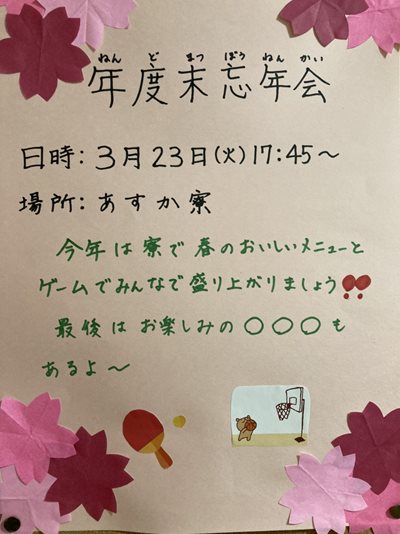 ねん ど まつ ぼう ねん かい
年度末忘年会
日時：3月23日(火)17:45～
場所：あすか寮
今年は寮で春のおいしいメニューと
ゲームでみんなで盛り上がりましょう!!
最後はお楽しみの〇〇〇も
あるよ～